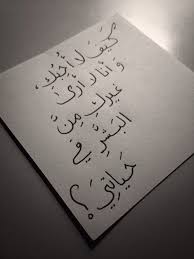 كَيفَ لا أُحِبُكِ،
وَ أَنا لا أرىٰ
غيرِكِ مِنَّ
البَشَرِّ في
حَياتِيَ؟